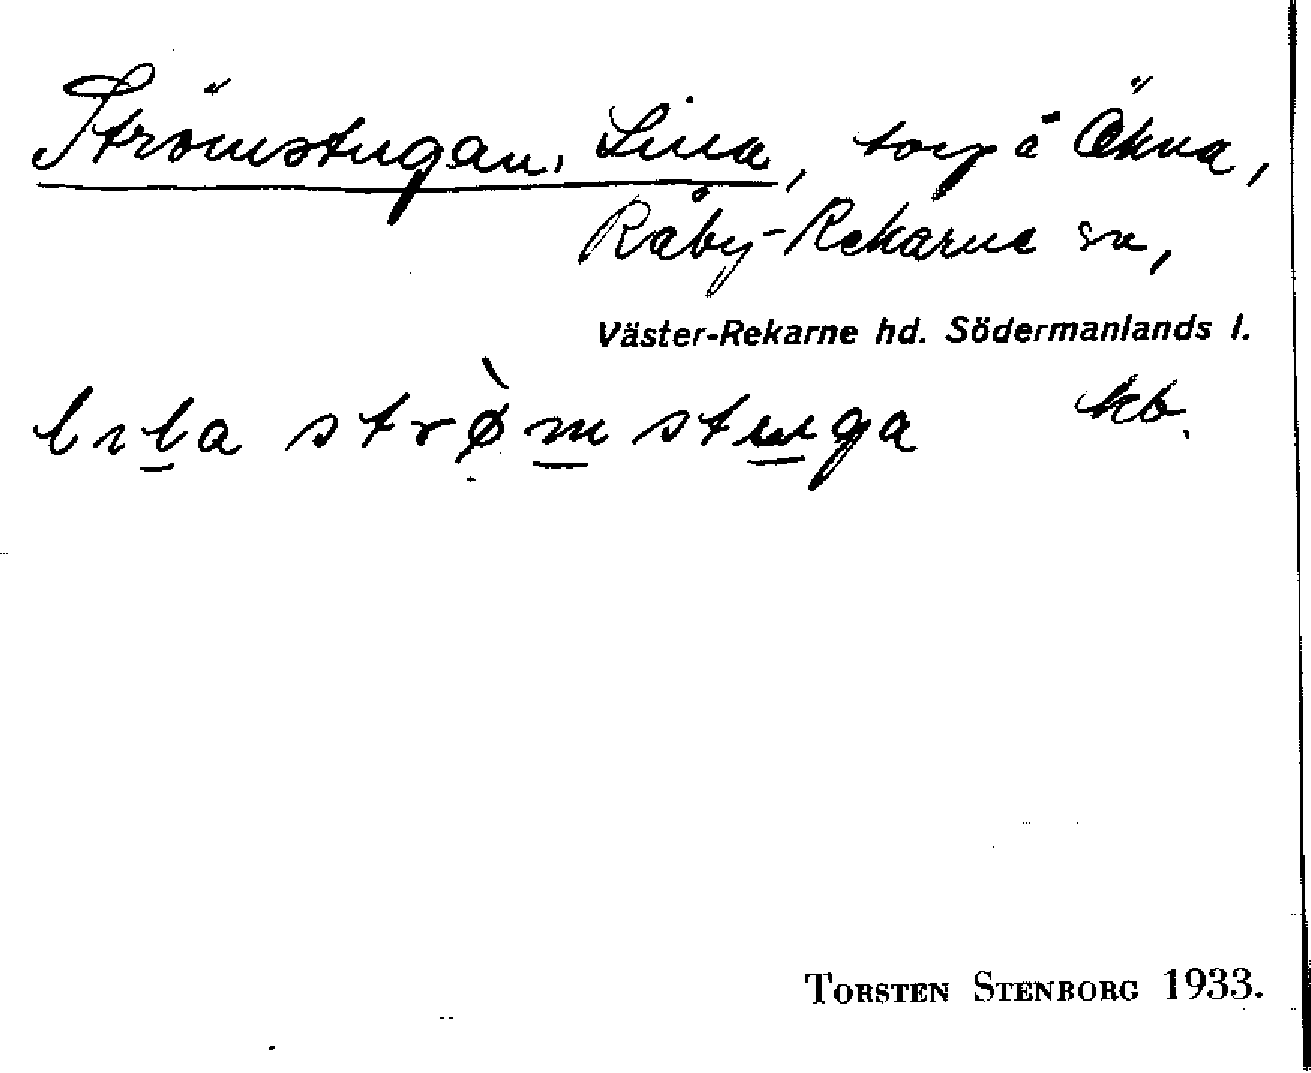 Strömstugan, Lilla, torp å Ökna,
Råby-Rekarne sn,
Väster-Rekarne hd. Södermanlands l.
lıl̲a strø̀m̲stu̲ga kb.
TORSTEN STENBORG 1933.